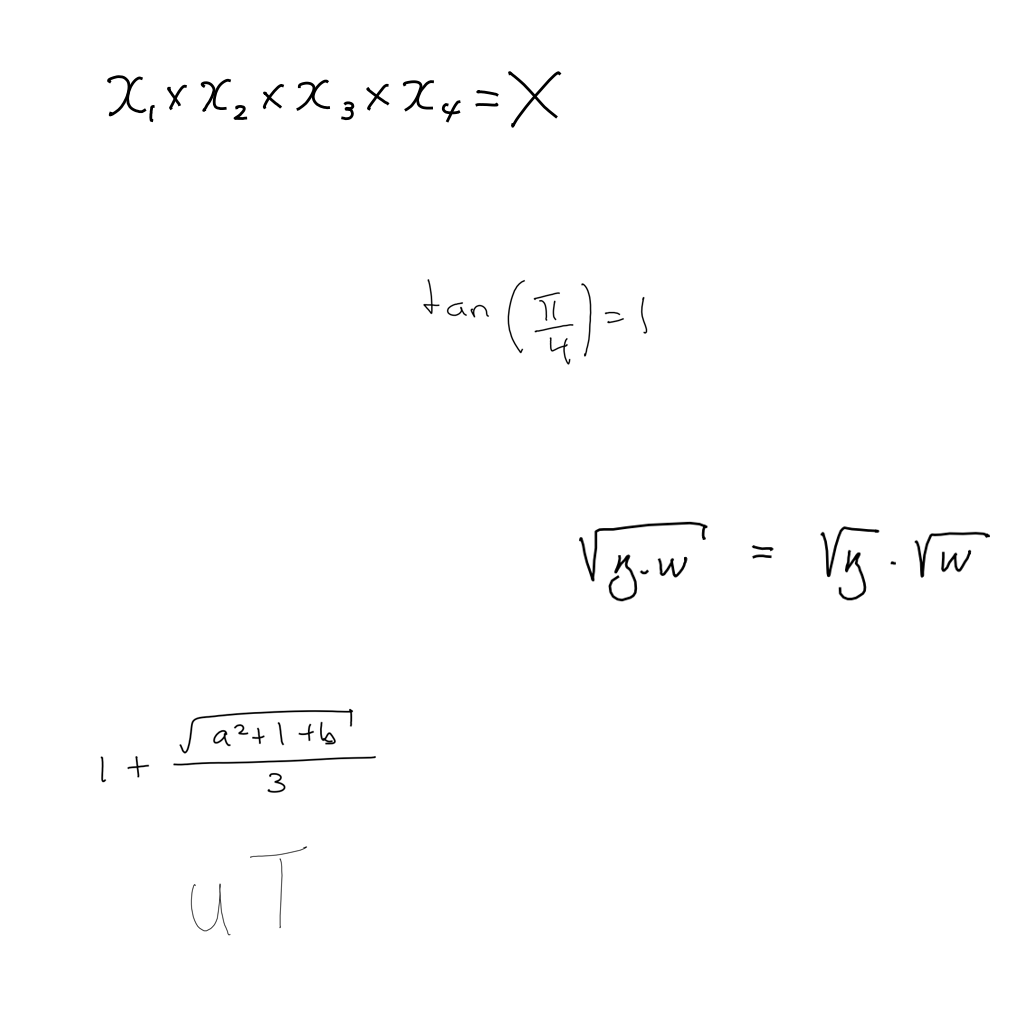 x₁ × x₂ × x₃ × x₄ = X
tan(π/4) = 1
√(z·w) = √z · √w
1 + √(a²+1+b)/3
u^T